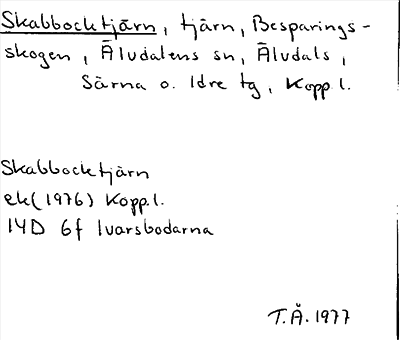 Skabbocktjärn, tjärn, Besparings-
skogen, Älvdalens sn, Älvdals,
Särna o. Idre tg, Kopp l.
Skabbocktjärn
ek (1976) Kopp.l.
14D 6f Ivarsbodarna
T.Å. 1977